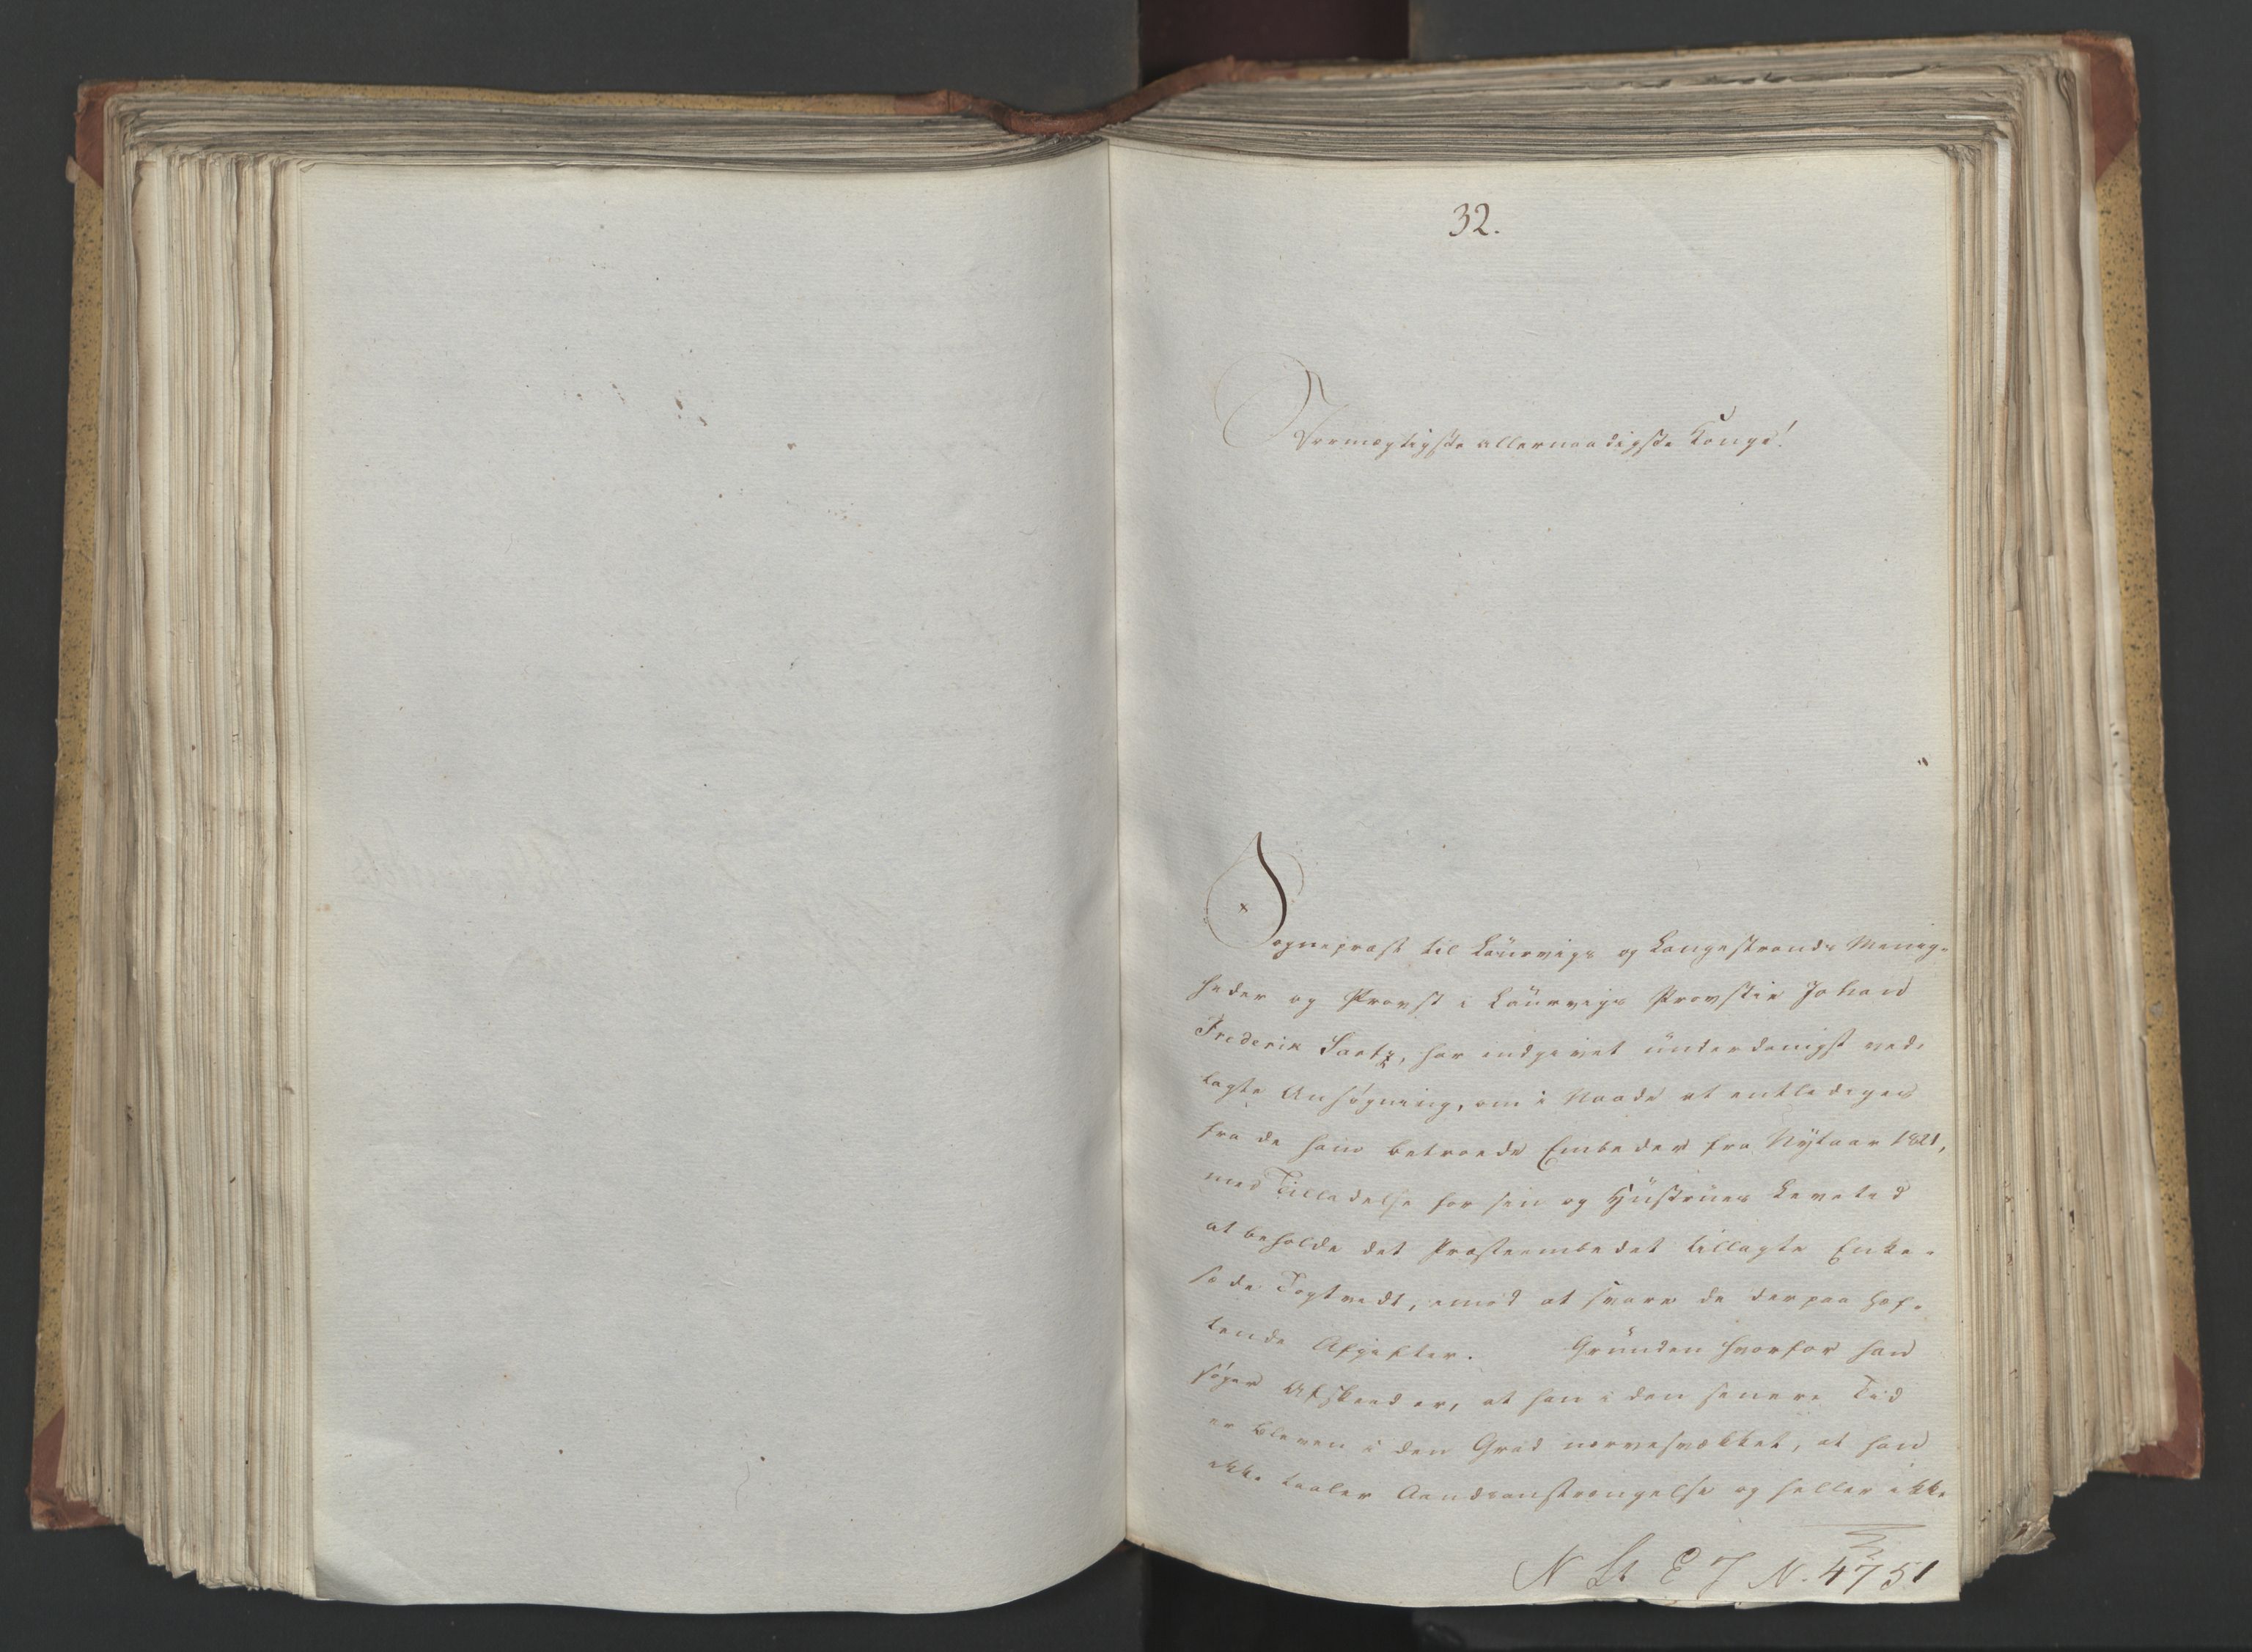 32.
Stormægtigste allernaadigste Konge!
Sognepræst til Laurvigs og Langestrands Menig-
heder og Provst i Laurvigs Provstie Johan
Frederik Sartz, har indgivet underdanigst ved-
lagte Ansøgning, om i Naade at entlediges
fra de ham betroede Embeder fra Nytaar 1821,
med Tilladelse for sin og Hustrues Levetid
at beholde det Præsteembedet tillagte Enke-
sæde Togtvedt, imod at svare de derpaa hæf-
tende Afgifter. Grunden hvorfor han
søger Afskeed er, at han i den senere Tid
er bleven i den Grad nervesvækket, at han
ikke taaler Aandsanstrængelse og heller ikke
N St E J N. 4751